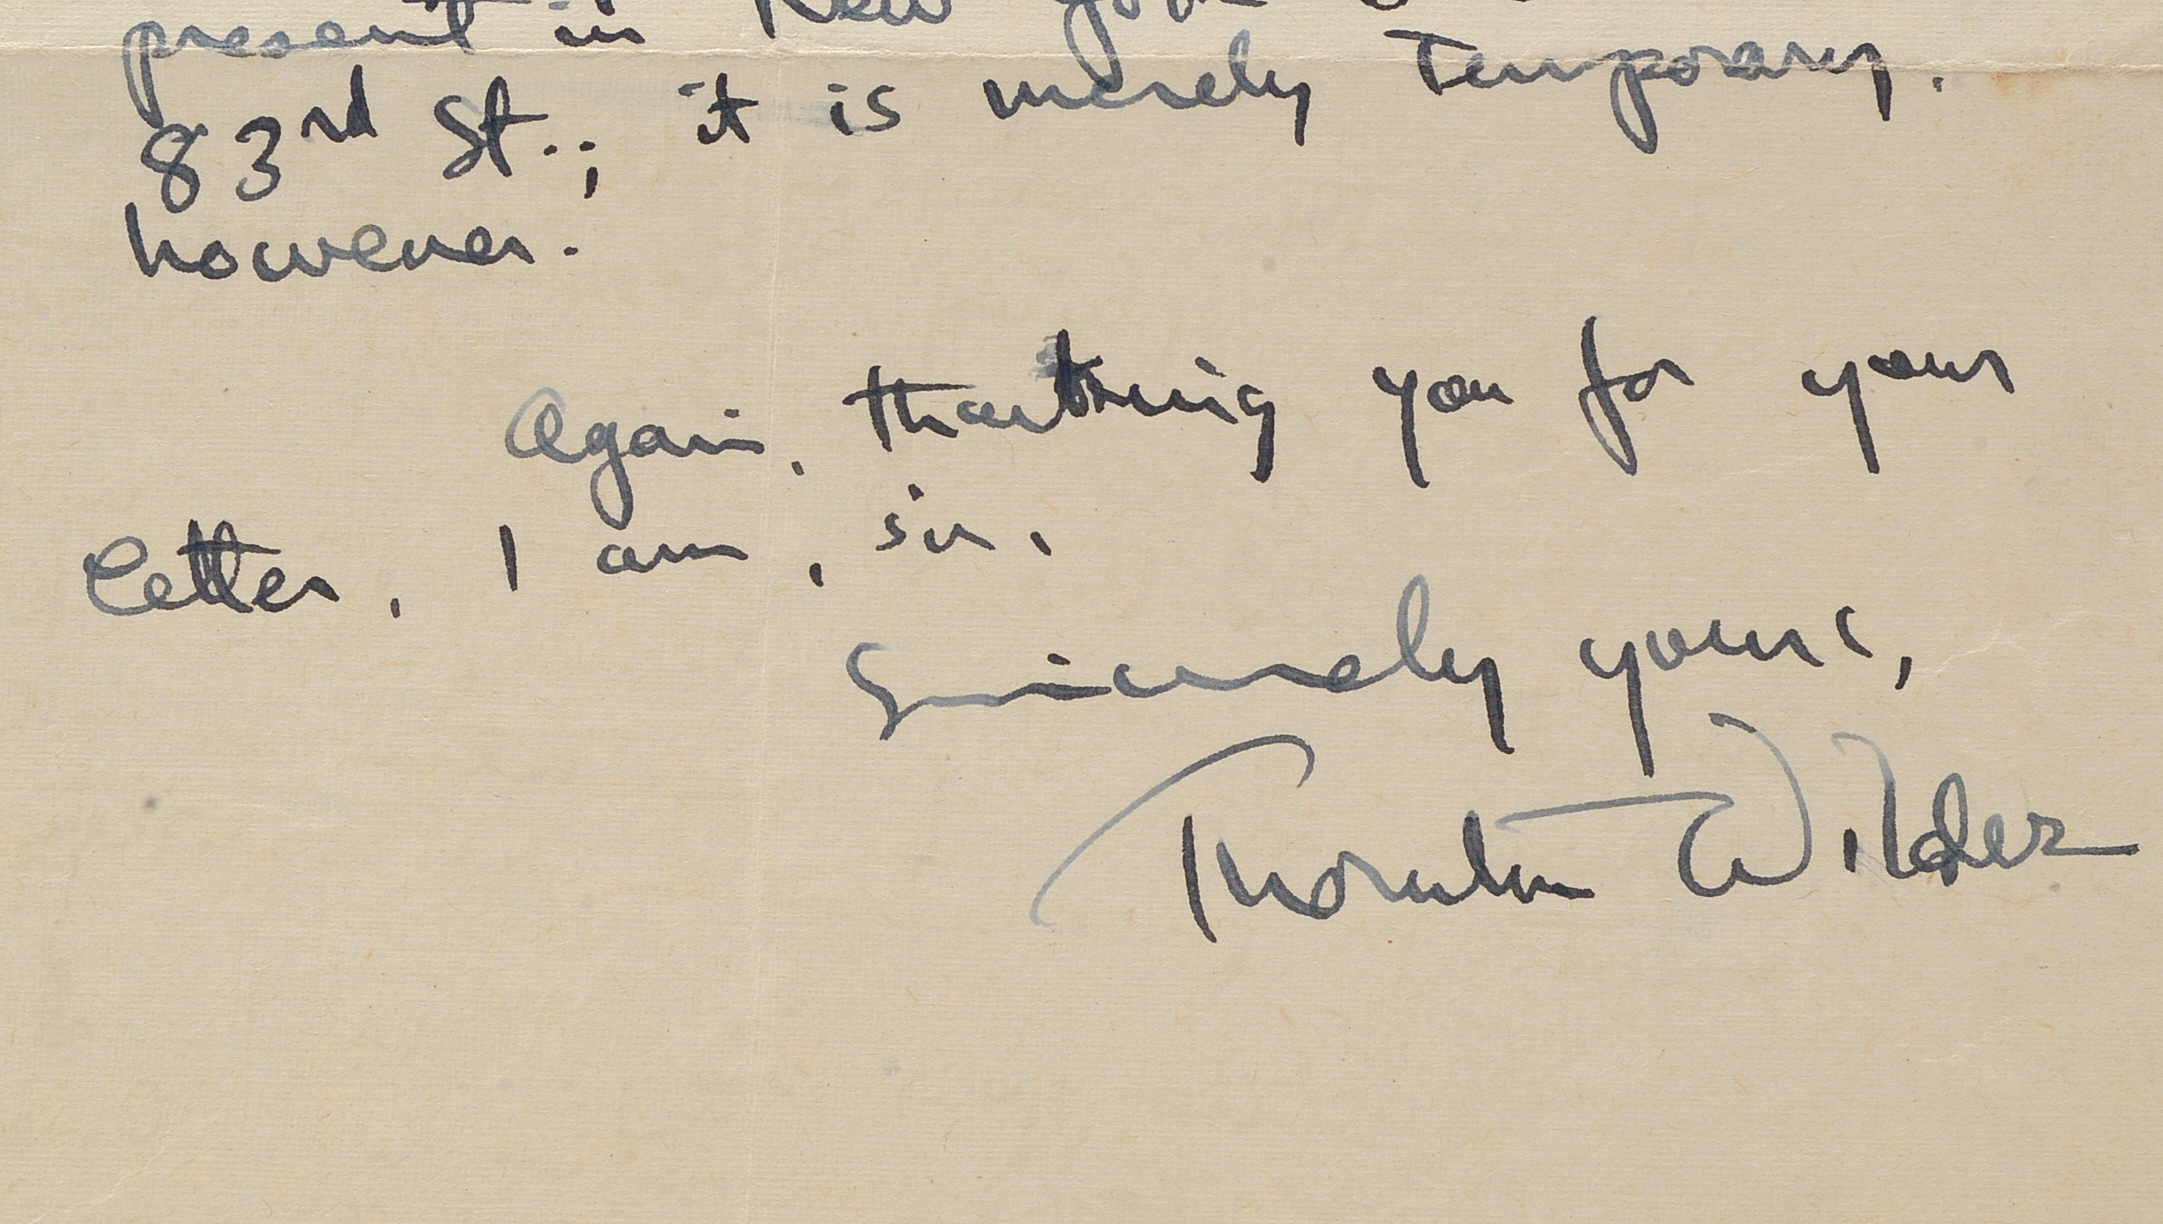 present in New York
83rd St.; it is merely temporary.
however.
Again, thanking you for your
letter, I am, sir,
Sincerely yours,
Thornton Wilder